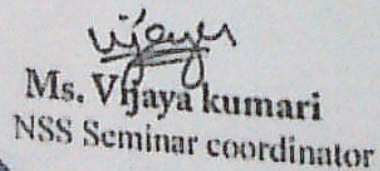 vijaya
Ms. Vijaya kumari
NSS Seminar coordinator